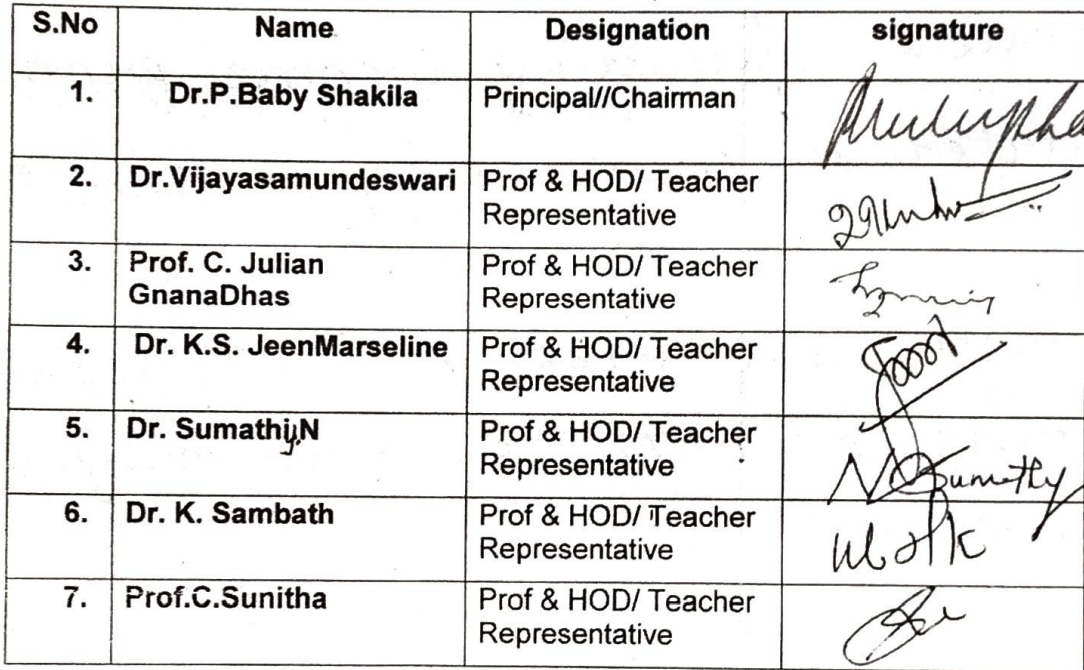 S.No Name Designation signature
1. Dr.P.Baby Shakila Principal//Chairman
2. Dr.Vijayasamundeswari Prof & HOD/ Teacher
Representative
3. Prof. C. Julian Prof & HOD/ Teacher
GnanaDhas Representative
4. Dr. K.S. JeenMarseline Prof & HOD/ Teacher
Representative
5. Dr. Sumathy.N Prof & HOD/ Teacher
Representative N Sumathy
6. Dr. K. Sambath Prof & HOD/ Teacher
Representative
7. Prof.C.Sunitha Prof & HOD/ Teacher
Representative